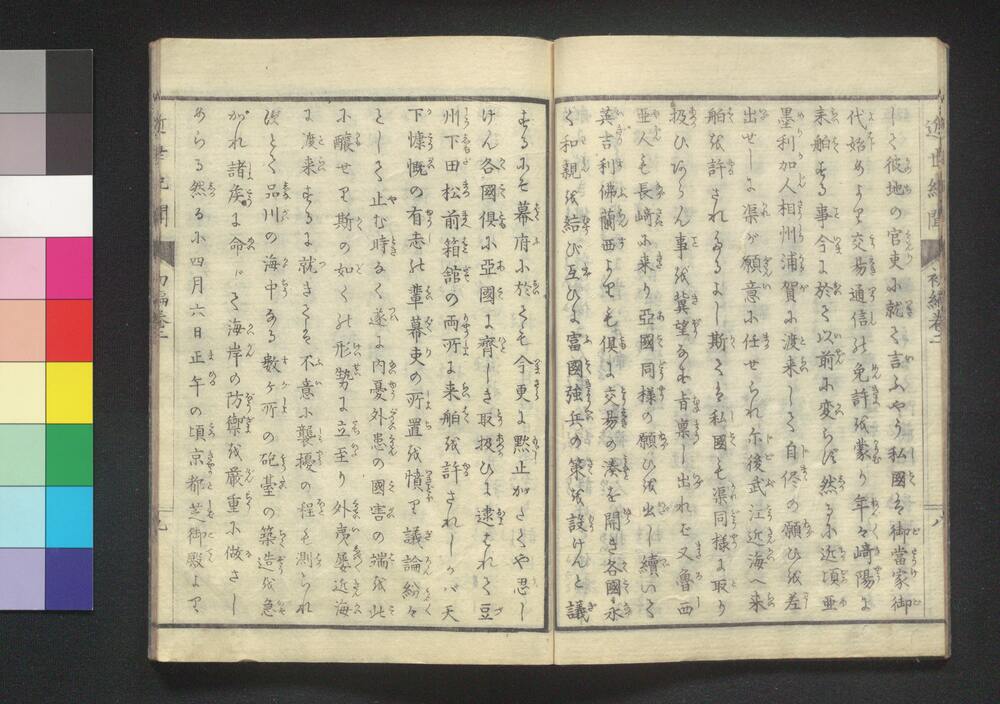 近世紀聞 初編巻二 八
して彼地の官吏に就て言ふやう私國は御當家御
代始めより交易通信の免許を蒙り年々崎陽に
来舶する事今に於て以前に変らず然るに近頃亜
墨利加人相州浦賀に渡来して自侭の願ひを差
出せしに渠が願意に任せられ尓後武江近海へ来
舶を許されたるよし斯ては私國も渠同様に取り
扱ひあらん事を冀望なす旨稟し出れば又魯西
亜人も長崎に来り亜國同様の願ひを出し續いて
英吉利佛蘭西よりも俱に交易の湊を開き各國永
く和親を結び互ひに富國強兵の策を設けんと議
するにぞ幕府に於ても今更に黙止がたくや思し
けん各國俱に亜國に齊しき取扱ひに逮ばれて豆
州下田松前箱舘の両所に来舶を許されしかバ天
下慷慨の有志の輩幕吏の所置を憤り議論紛々
として止む時なく遂に内憂外患の國害の端を此
に醸せり斯の如くの形勢に立至り外夷屡近海
に渡来するに就きては不意に襲擾の程も測られ
ずとて品川の海中なる數ヶ所の砲臺の築造を急
がれ諸侯に命じて海岸の防禦を厳重に做さし
めらる然るに四月六日正午の頃京都芝御殿より
近世紀聞 初編巻二 九